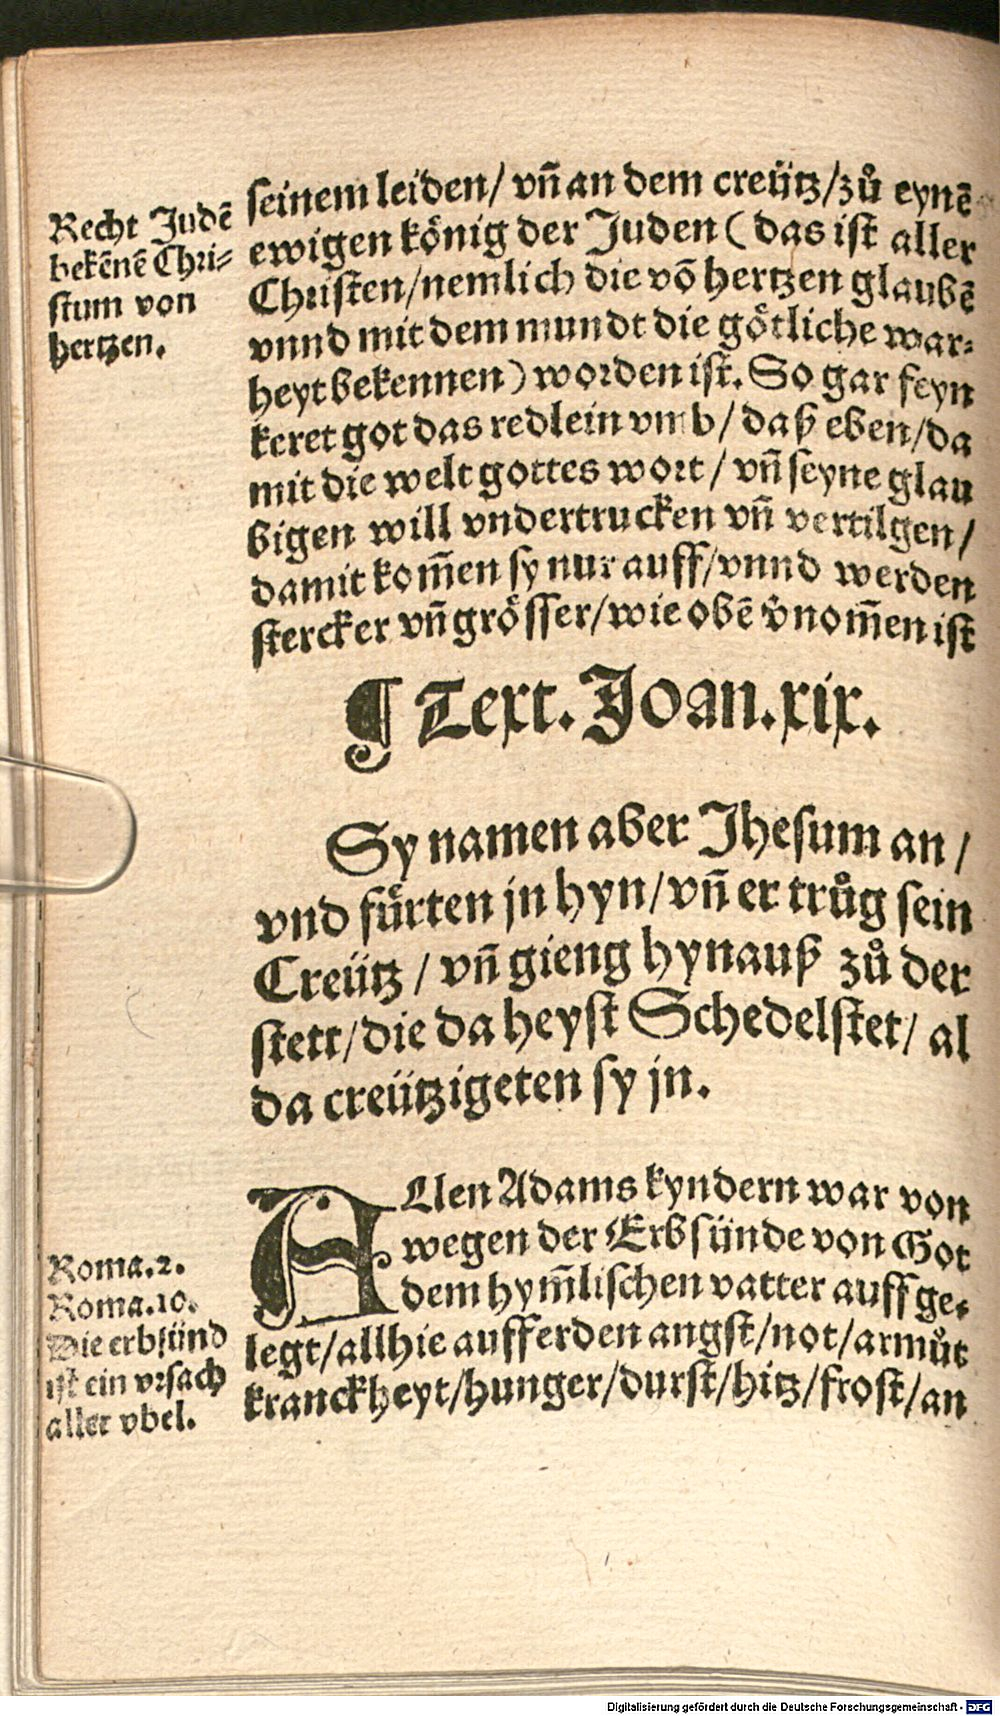 Recht Judē
bekēnē Chri-
stum von
hertzen.
seinem leiden/ vn̄ an dem creütz/zů eynē
ewigen könig der Juden ( das ist aller
Christen/nemlich die vō hertzen glaubē
vnnd mit dem mundt die götliche war-
heyt bekennen ) worden ist. So gar feyn
keret got das redlein vmb/ daß eben/da
mit die welt gottes wort/ vn̄ seyne glau
bigen will vndertrucken vn̄ vertilgen/
damit kom̄en sy nur auff/vnnd werden
stercker vn̄ grösser/wie obē v̓nom̄en ist
¶ Text. Joan.xix.
Sy namen aber Jhesum an/
vnd fürten jn hyn/vn̄ er trůg sein
Creütz/ vn̄ gieng hynauß zů der
stett/die da heyst Schedelstet/ al
da creützigeten sy jn.
Roma.2.
Roma.10.
Die erbsünd
ist ein vrsach
aller vbel.
ALlen Adams kyndern war von
wegen der Erbsünde von Got
dem hym̄lischen vatter auff ge-
legt/allhie auff erden angst/not/armůt
kranckheyt/hunger/durst/hitz/frost/an
Digitalisierung gefördert durch die Deutsche Forschungsgemeinschaft - DFG